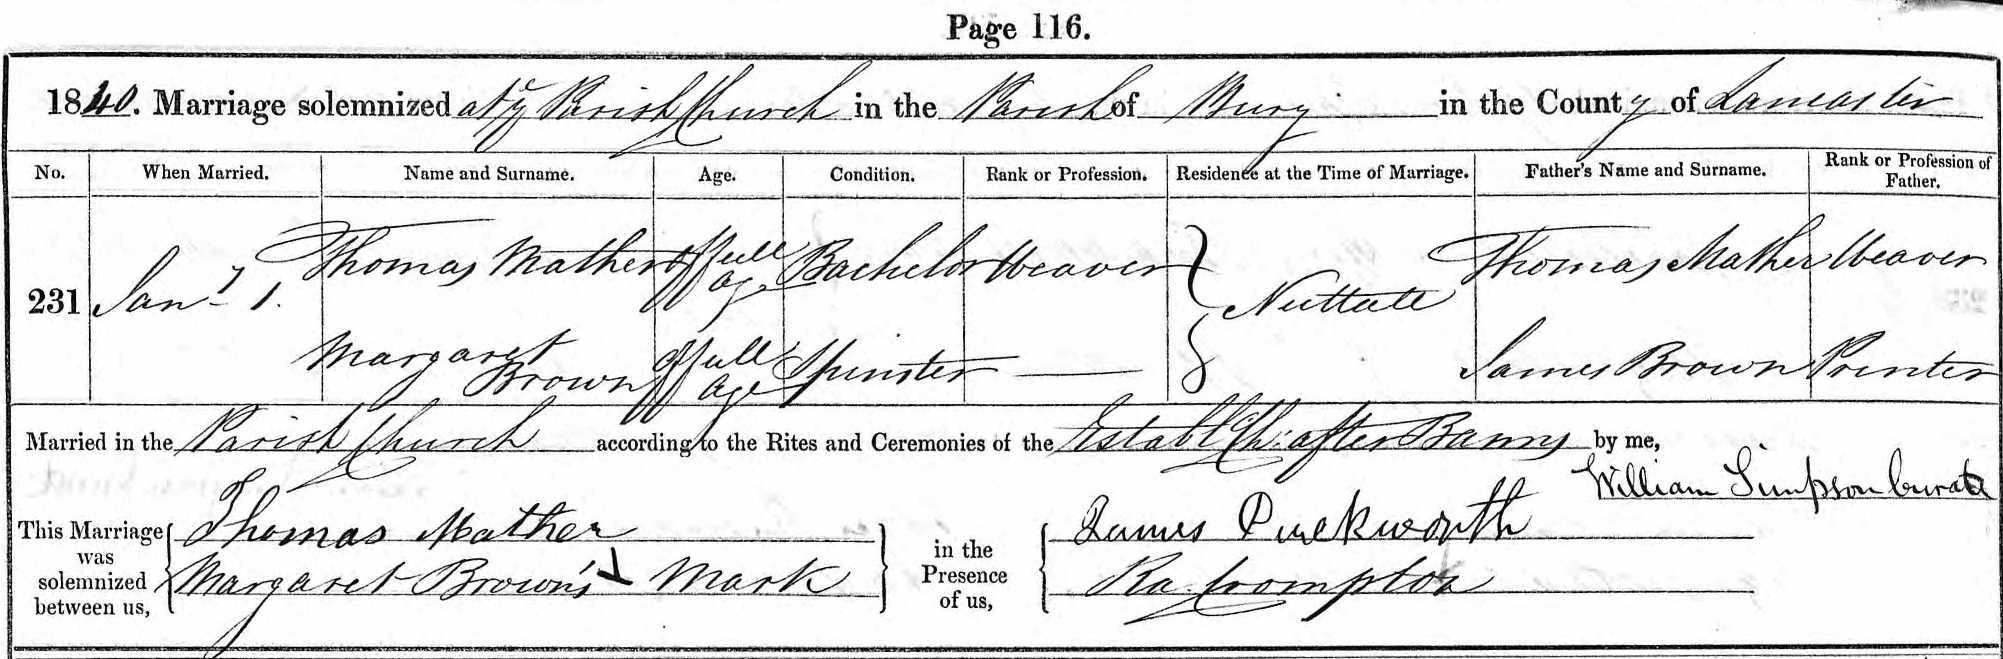 Page 116.
1840. Marriage solemnized at ye Parish Church in the Parish of Bury in the County of Lancaster
No. When Married. Name and Surname. Age. Condition. Rank or Profession. Residence at the Time of Marriage. Father's Name and Surname. Rank or Profession of Father.
231 Jany 1. Thomas Mather of full age Bachelor Weaver Nuttall Thomas Mather Weaver
Margaret Brown of full age Spinster — James Brown Printer
Married in the Parish Church according to the Rites and Ceremonies of the Establd Ch: after Banns by me,
William Simpson Curate
This Marriage was solemnized between us, Thomas Mather in the Presence of us, James Duckworth
Margaret Brown's Mark Ra. Crompton